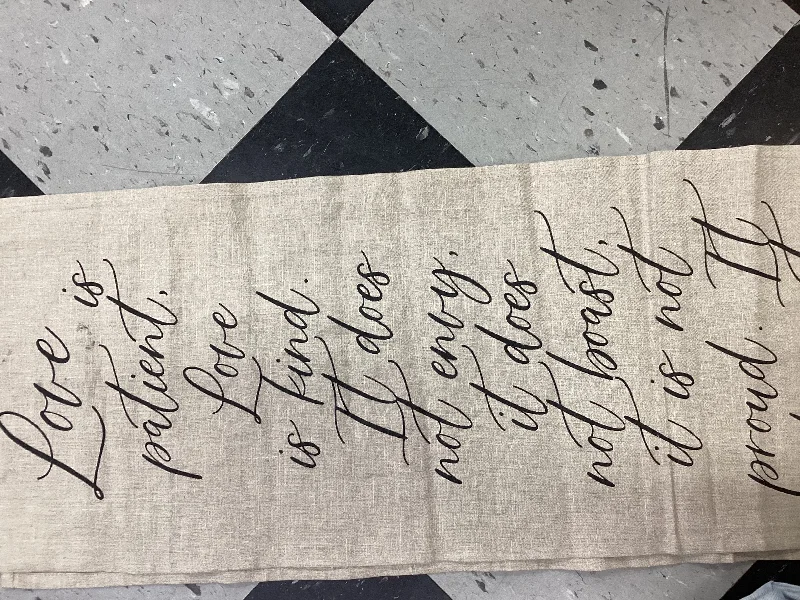 Love is
patient,
Love
is kind.
It does
not envy,
it does
not boast,
it is not
proud. It